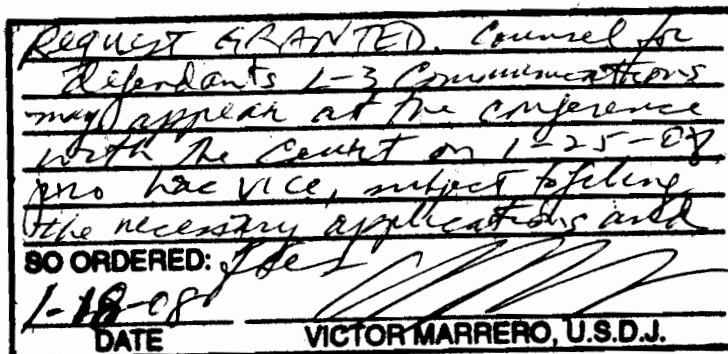 Request GRANTED. Counsel for
defendants L-3 Communications
may appear at the conference
with the Court on 1-25-08
pro hac vice, subject to filing
the necessary applications and
SO ORDERED: fees
1-18-08
DATE VICTOR MARRERO, U.S.D.J.